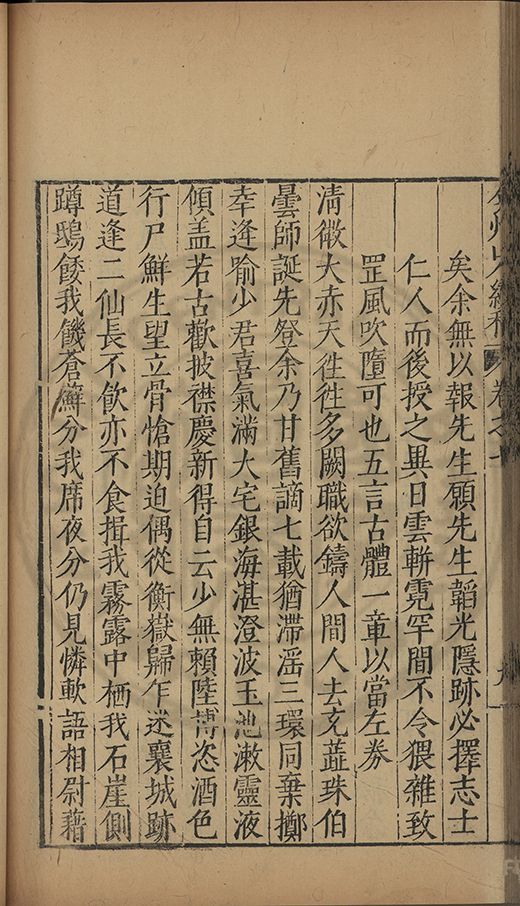 弇州山人續稿 卷之十 九
矣余無以報先生願先生韜光隱跡必擇志士
仁人而後授之異日雲輧霓罕間不令猥雜致
罡風吹墮可也五言古體一章以當左券
清微大赤天徃徃多闕職欲鑄人間人去充蘂珠伯
曇師誕先登余乃甘舊謫七載猶滯滛三環同棄擲
幸逢喻少君喜氣滿大宅銀海湛澄波玉池漱靈液
傾盖若古歡披襟慶新得自云少無賴陸博恣酒色
行尸鮮生望立骨愴期迫偶從衡嶽歸乍迷襄城跡
道逢二仙長不飲亦不食揖我霧露中栖我石崖側
蹲鴟餧我饑蒼蘚分我席夜分仍見憐軟語相尉藉